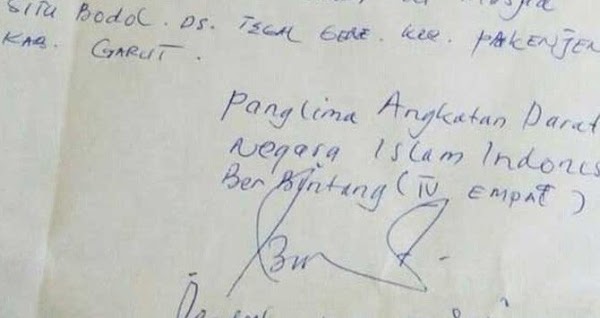 SITU BODOL. DS. TEGAL GEDE. KEC. PAKENJEN
KAB. GARUT.
Panglima Angkatan Darat
Negara Islam Indones
Ber Bintang (IV EMPAT)